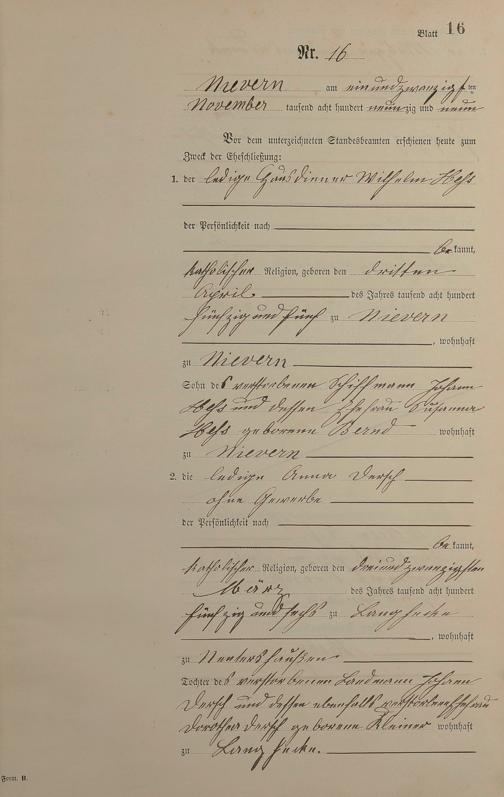 Blatt 16
Nr. 16
Nievern am einundzwanzigsten
November tausend acht hundert neunzig und neun
Vor dem unterzeichneten Standesbeamten erschienen heute zum
Zweck der Eheschließung:
1. der ledige Hausdiener Wilhelm Heß
der Persönlichkeit nach
be kannt,
katholischer Religion, geboren den dritten
April des Jahres tausend acht hundert
fünfzig und fünf zu Nievern
, wohnhaft
zu Nievern
Sohn des verstorbenen Schiffmann Johann
Heß und dessen Ehefrau Susanna
Heß geborenen Bernd wohnhaft
zu Nievern
2. die ledige Anna Dersch
ohne Gewerbe
der Persönlichkeit nach
be kannt,
katholischer Religion, geboren den dreiundzwanzigsten
März des Jahres tausend acht hundert
fünfzig und sechs zu Langhecke
, wohnhaft
zu Nentershausen
Tochter des verstorbenen Landmann Johann
Dersch und dessen ebenfalls verstorbenen Ehefrau
Dorothea Dersch geborene Kleiner wohnhaft
zu Langhecke.
Form. B.